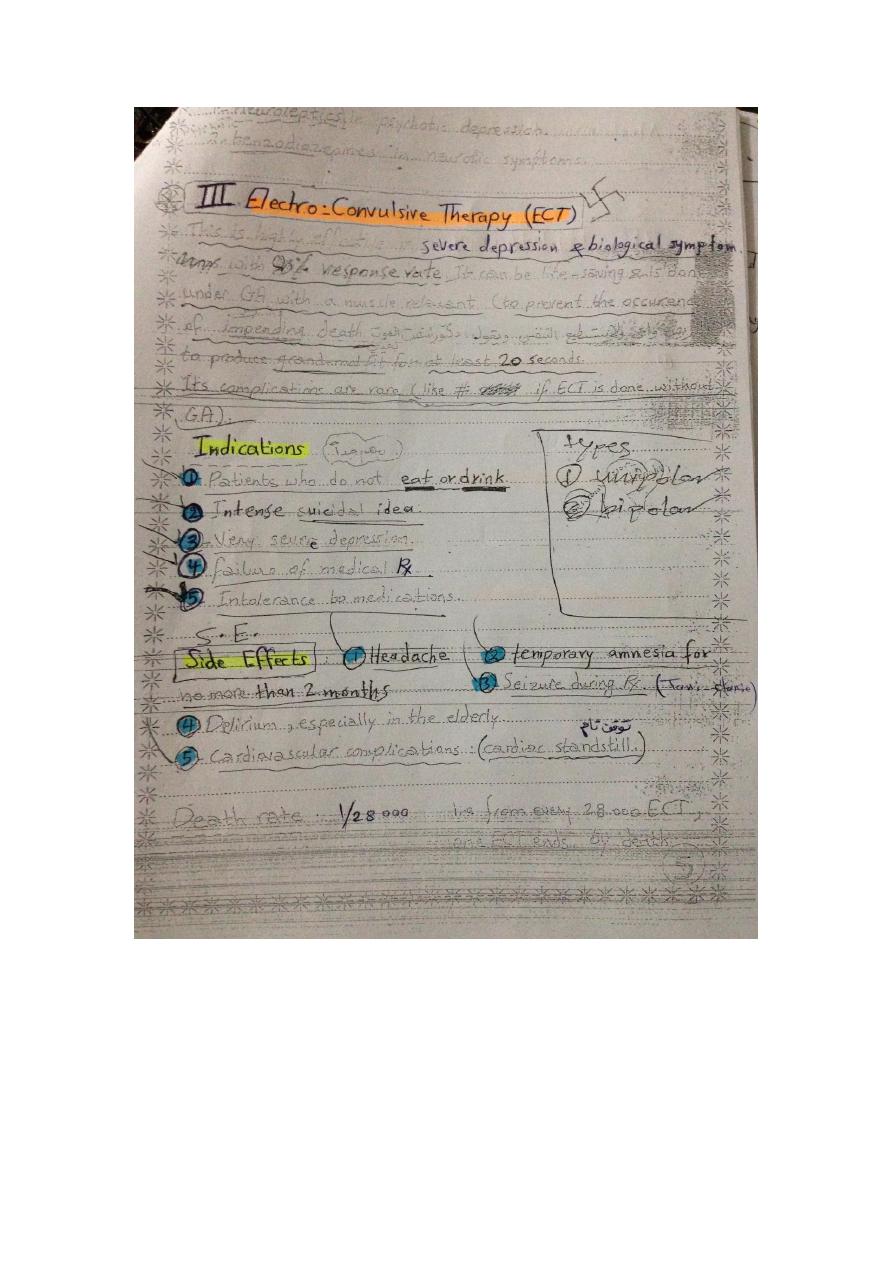 in neuroleptics in psychotic depression.
benzodiazepines in neurotic symptoms.
III Electro-Convulsive Therapy (ECT)
This is highly effective in severe depression & biological symptom
with 90% response rate. It can be life-saving & is done
under GA with a muscle relaxant (to prevent the occurence
of impending death
to produce grand mal fit for at least 20 seconds.
Its complications are rare (like # if ECT is done without
GA).
Indications
types
① Patients who do not eat or drink
① unipolar
② Intense suicidal idea.
② bipolar
③ Very severe depression.
④ failure of medical Rx
⑤ Intolerance to medications.
S.E.
Side Effects : ① Headache ② temporary amnesia for
no more than 2 months ③ Seizure during Rx.
④ Delirium, especially in the elderly
توقف تام
⑤ Cardiovascular complications : (cardiac standstill.)
Death rate : 1/28 000 i.e from every 28.000 ECT,
one ECT ends by death.
5